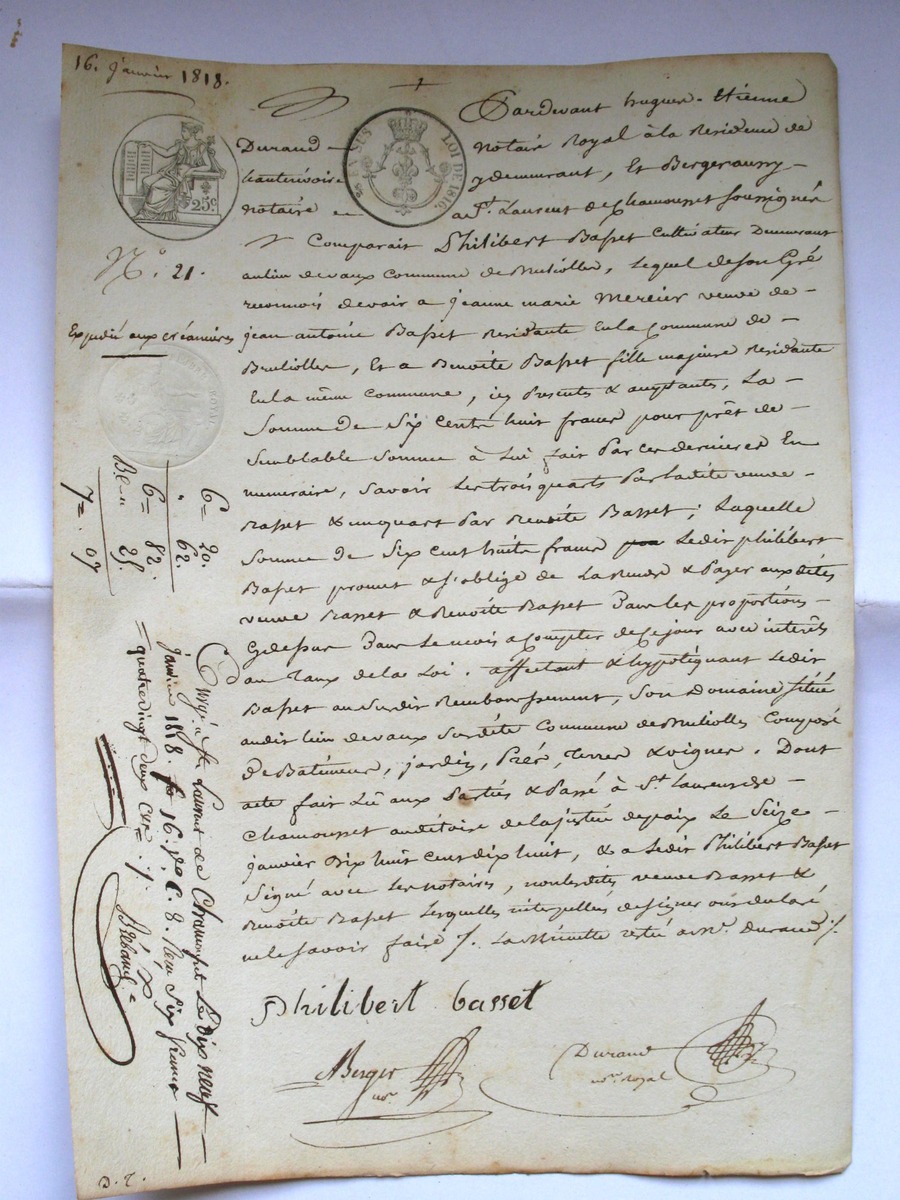 16. janvier 1818.
25 c.
LOI DE 1816.
N.° 21.
Expédié aux créanciers
Pardevant hugues - Etienne
Durand notaire Royal à la Residence de
hauterivoire y demeurant, Et Berger aussy
notaire a St. Laurent de Chamousset soussignés
Comparait Philibert Basset Cultivateur Demeurant
au lieu de vaux Commune de Brulliolles, Lequel de son Gré
reconnois devoir a jeanne marie Mercier veuve de
jean antoine Basset Residante En la Commune de
Brulliolles, Et a Benoite Basset fille majeure Residante
En la même Commune, icy Presents & acceptants, La
Somme De Six Cents huit francs pour prêt de
Semblable Somme à Lui fait Par ces dernieres En
numeraire, Savoir Les trois quarts Par ladite veuve
Basset & un quart Par Benoite Basset; Laquelle
Somme de Six Cent huits francs Ledit philibert
Basset promet & s'oblige de La rendre & Payer auxdites
veuve Basset & Benoite Basset Dans Les proportions
Cydessus Dans Le mois a Compter de Ce jour avec interêts
au Taux de la Loi. affectant & hypotéquant Ledit
Basset au Susdit Remboursement, Son Domaine Situé
audit Lieu de vaux Susdite Commune de Brulliolles Composé
de Batiments, jardin, Prés, Terres & vignes. Dont
acte fait Lû aux Parties & Passé à St. Laurent de
Chamousset auditoire de la justice de paix Le Seize
janvier Dix huit cent dix huit, & a Ledit Philibert Basset
Signé avec Les notaires, non lesdites veuve Basset &
Benoite Basset Lesquelles interpellées de signer ont declaré
ne le Savoir faire ./. La Minute restée a Mr. Durand ./.
Philibert basset
Berger
nre
Durand
nre royal
6= 20.
" 62.
6= 82.
25.
7= 07
Enregé. à St. Laurent de Chamousset Le dix neuf
janvier 1818. fo 16. Vo C. 8. Reçu Six francs
quatre vingt deux cmes ./.
D. T.